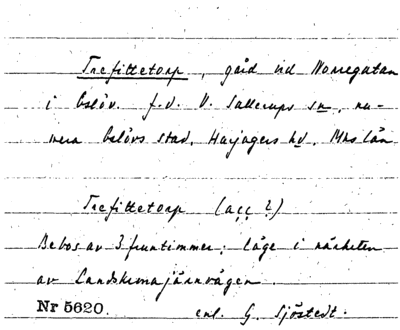 Trefittetorp, gård vid Norregatan
i Eslöv. f.d. V. Sallerups sn, nu-
mera Eslövs stad, Harjagers hd. Mhs län
Trefittetorp (acc ?)
Bebos av 3 fruntimmer; läge i närheten
av Landskronajärnvägen.
Nr 5620. enl. G. Sjöstedt.